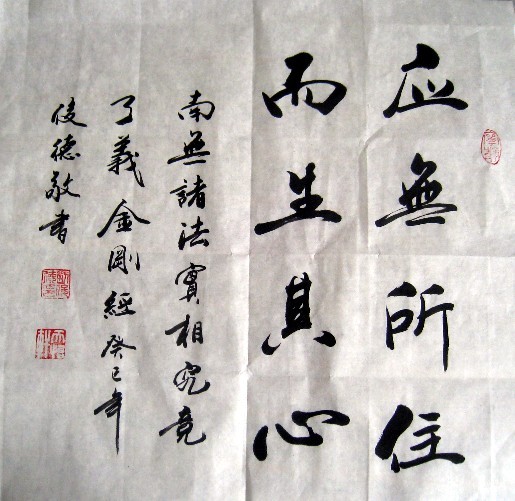 应無所住
而生其心
南無諸法實相究竟
了義金剛經癸巳年
俊德敬書